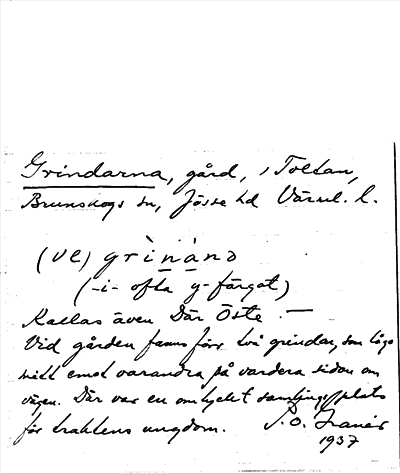 Grindarna, gård, i Toltan,
Brunskogs sn, Jösse hd Värml. l.
(ve) grìnànɔ
(-i- ofta y-färgat)
Kallas även Där Öste. —
Vid gården fanns förr två grindar, som lågo
mitt emot varandra på vardera sidan om
vägen. Där var en omtyckt samlingsplats
för traktens ungdom. S. O. Granér
1937